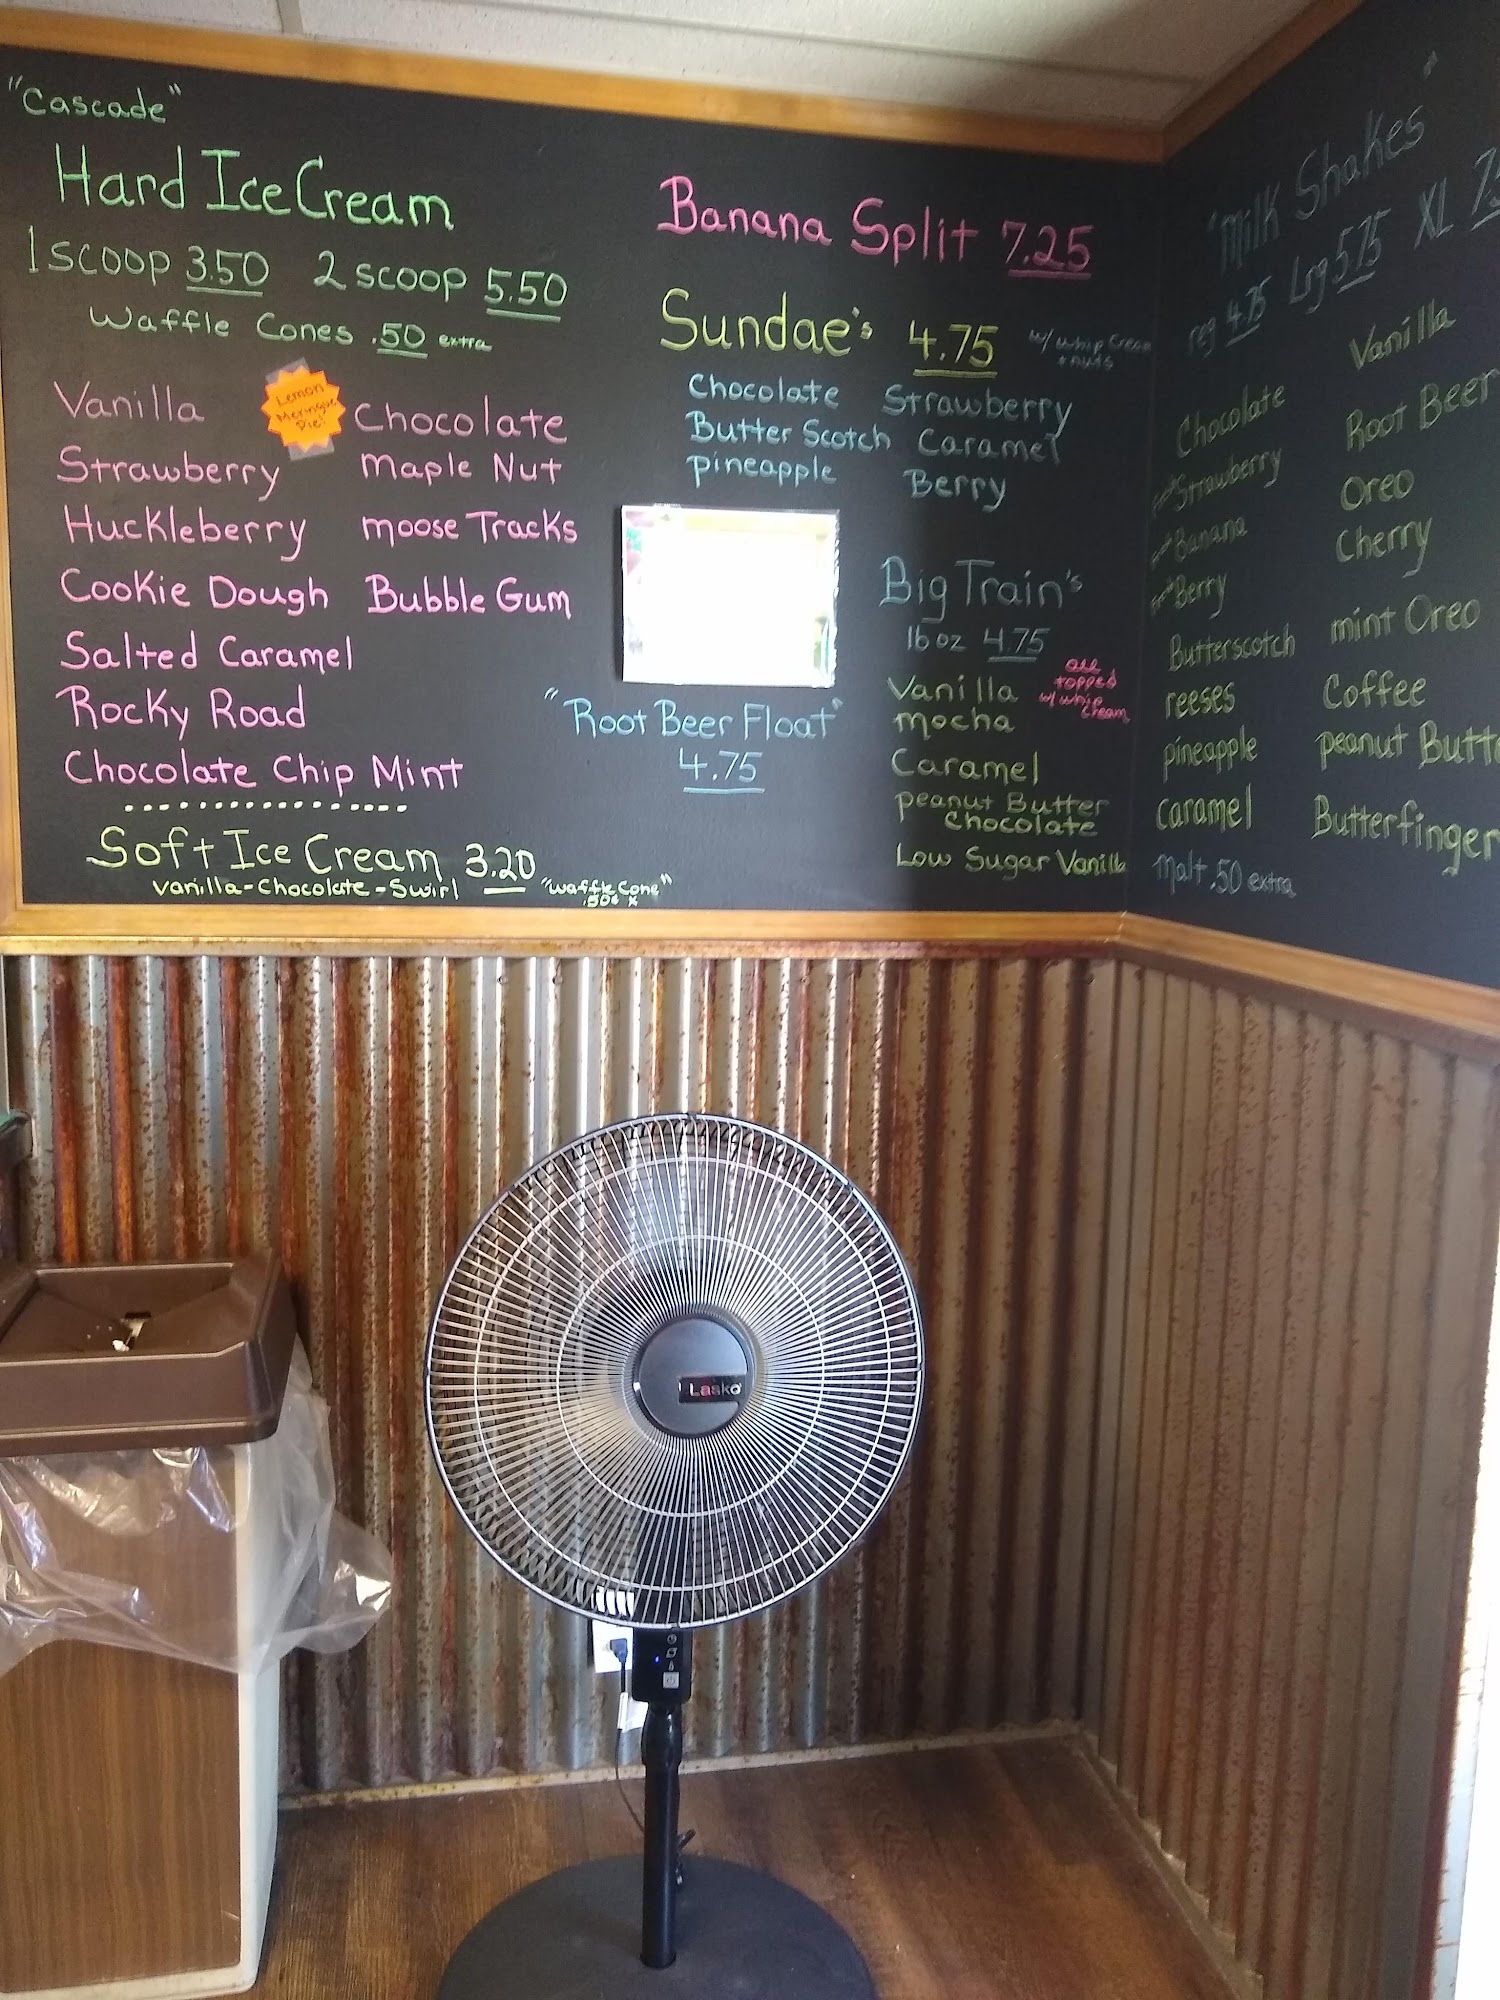 "Cascade"
Hard Ice Cream
1 scoop 3.50 2 scoop 5.50
Waffle Cones .50 extra
Vanilla
Lemon
Meringue
Pie!
Chocolate
Strawberry Maple Nut
Huckleberry moose Tracks
Cookie Dough Bubble Gum
Salted Caramel
Rocky Road
Chocolate Chip Mint
Soft Ice Cream 3.20
Vanilla-Chocolate-Swirl "Waffle Cone"
.50¢ x
Banana Split 7.25
Sundae's 4.75 w/ whip Cream
+ nuts
Chocolate Strawberry
Butter Scotch Caramel
pineapple Berry
"Root Beer Float"
4.75
Big Train's
16 oz 4.75
all
topped
w/ whip
cream
Vanilla
mocha
Caramel
peanut Butter
Chocolate
Low Sugar Vanilla
"Milk Shakes"
reg 4.75 Lrg 5.75 XL
Chocolate Vanilla
Strawberry Root Beer
Banana Oreo
Berry Cherry
Butterscotch mint Oreo
reeses Coffee
pineapple peanut Butte
Caramel Butterfinger
Malt .50 extra
Lasko